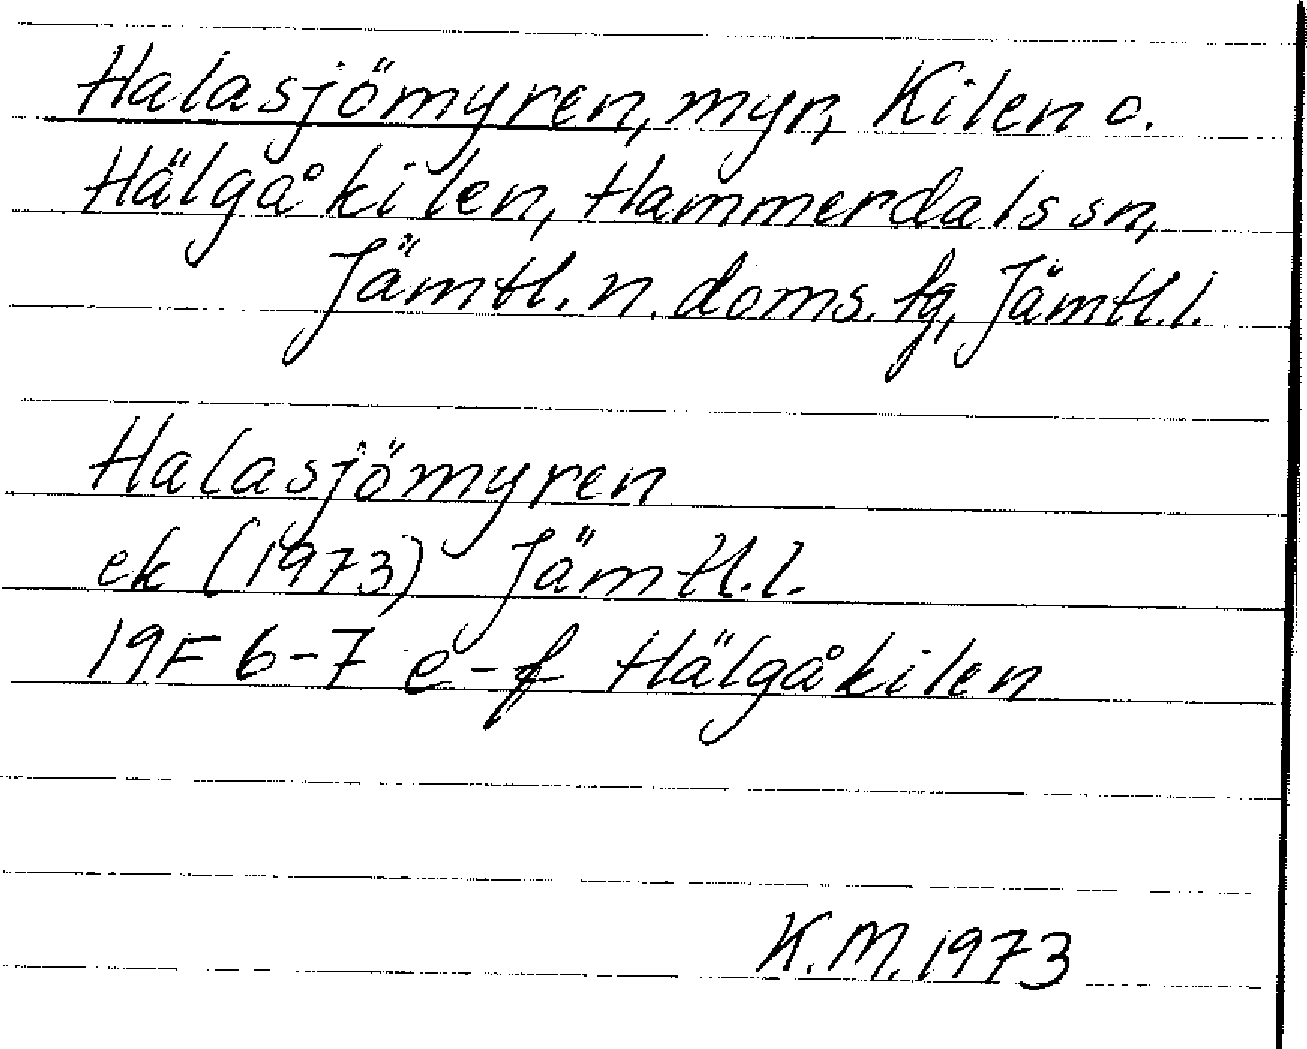 Halasjömyren, myr, Kilen o.
Hälgåkilen, Hammerdals sn,
Jämtl. n. doms. tg, Jämtl. l.
Halasjömyren
ek (1973) Jämtl. l.
19F 6-7 e-f Hälgåkilen
K.M. 1973